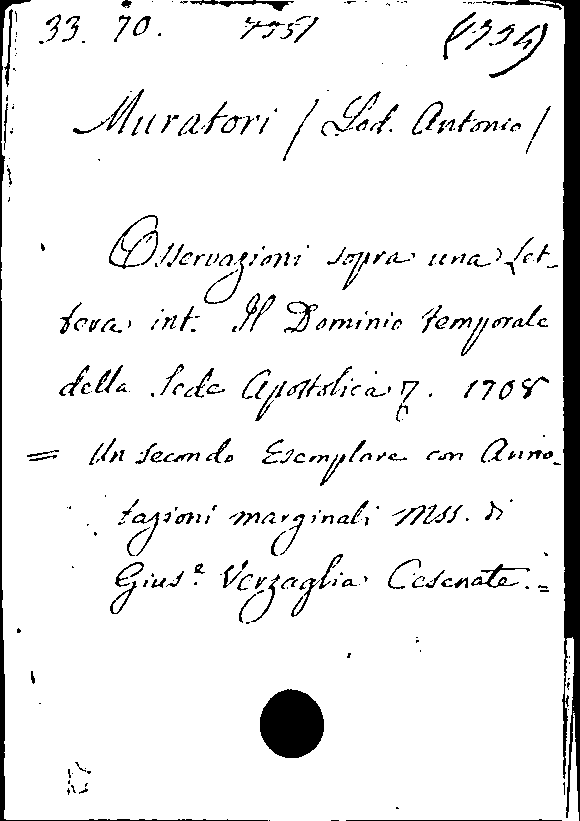 33. 70. 7551 (1354)
Muratori / Lod. Antonio /
Osservazioni sopra una Let-
tera int. Il Dominio temporale
della Sede Apostolica 7. 1708
= Un secondo Esemplare con Anno-
tazioni marginali Mss. di
Gius.e Verzaglia Cesenate. =